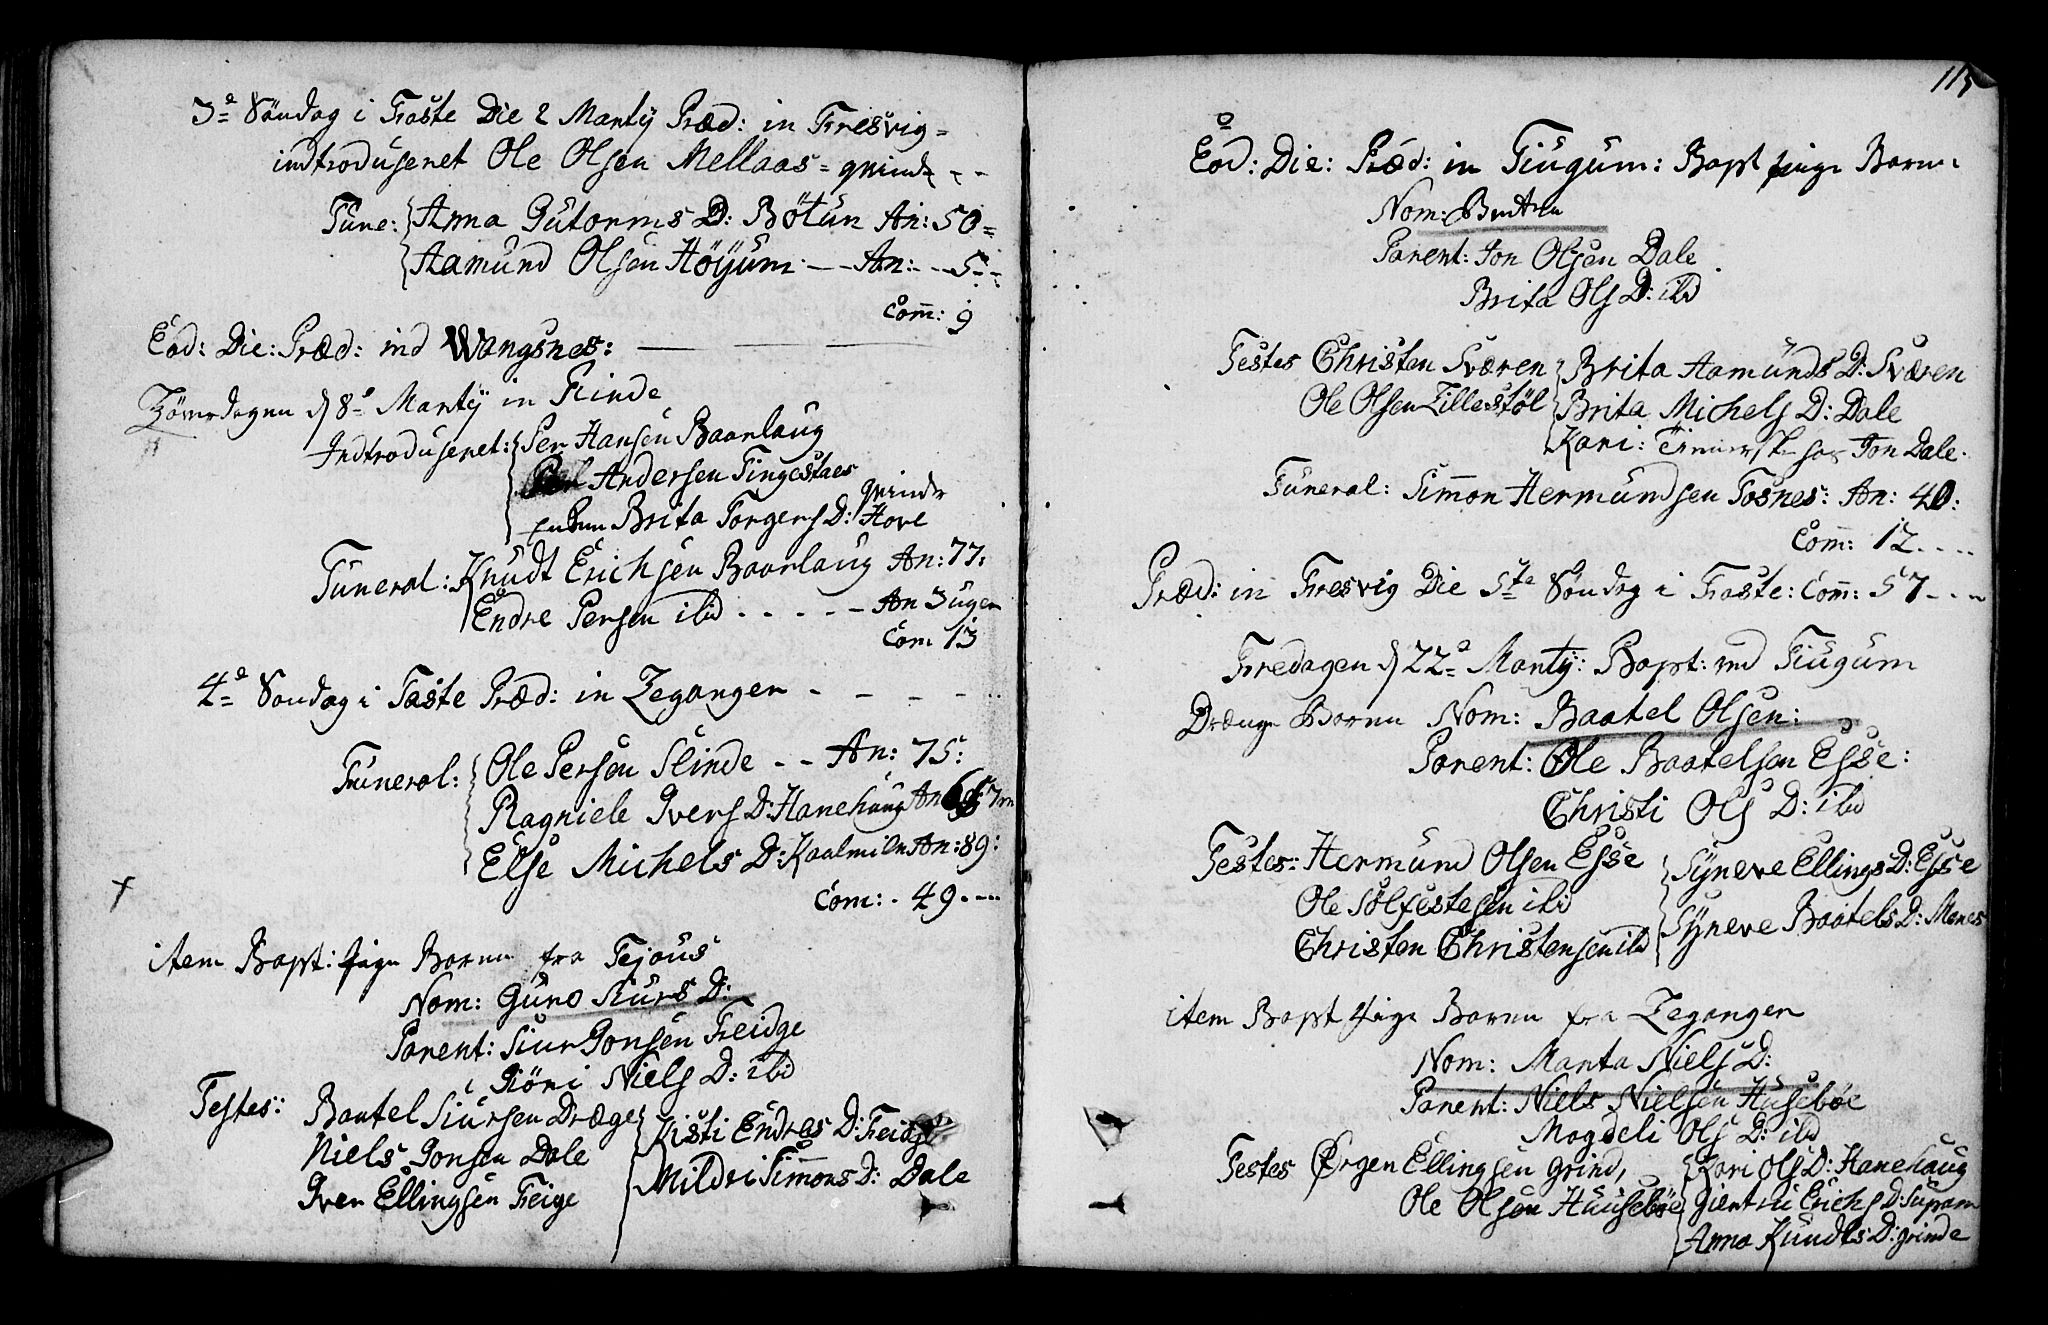 3=e Söndag i Faste Die 2 Marty Præd: in Fresvig =
indtroduseret Ole Olsen Mellaas = qvinde - -
Fune: Anna Gutorms D: Bötun An: 50 =
Aamund Olsen Höyum. - - An: - - 5 - -
Com: 9
Eod: Die: Præd: ind Wangsnes:
Löverdagen d 8=e Marty in Rinde
Indtroduseret: Per Hansen Baarlaug
Andersen Tingestaes
qvinder
Brita Torgers D: Hove
Funeral: Knudt Erichsen Baarlaug An: 77:
Endre Persen ibid - - - - - An 3 uger
Com 13
4=e Söndag i Faste Præd: in Legangen - - - -
Funeral: Ole Persen Slinde - - An: 75:
Ragniele Ivers D: Hanehaug An
Else Michels D: Kaalmilen An: 89:
Com: . 49. - - -
item Bapt: pige Barn fra Fejous
Nom: Guro Siurs D:
Parent: Siur Jonsen Feidge
Giöri Niels D: ibid
Testes: Baatel Siursen Dræge
Niels Jonsen Dale
Iver Ellingsen Feige
Kisti Endres D: Feidge
Mildri Simmons D: Dale
115
Eod: Die: Præd: in Tiugum: Bapt pige Barn:
Nom:
Parent: Jon Olsen Dale
Brita Ols D: ibid
Testes Christen Sværen Brita Aamunds D: Sværen
Ole Olsen Lillestöl Brita Michels D: Dale
Kari: hos Jon Dale.
Funeral: Simmon Hermundsen Tosnes: An: 40:
Com: 12 - - - -
Præd: in Fresvig Die 5te Söndag i Faste: Com: 57 - - -
Fredagen d 22=e Marty: Bapt: ind Tiugum
Drænge Barn Nom: Baatel Olsen:
Parent: Ole Baatelsen Esse:
Christi Ols D: ibid
Testes: Hermund Olsen Esse Syneve Ellings D: Esse
Ole Sölfestesen ibid
Christen Christensen ibid Syneve Baatels D: Menes
item Bapt pige Barn fra Legangen
Nom: Marta Niels D:
Parent: Niels Nielsen Husebőe
Magdeli Ols D: ibid
Testes Ørgen Ellingsen Grind, Kari Ols D: Hanehaug
Ole Olsen Huusebőe Giertru Erichs D: Supam
Anna Knudts D: grinde